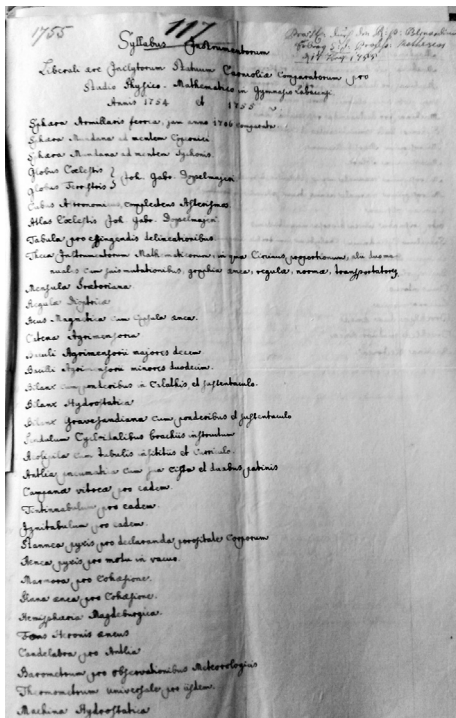 1755
117
Syllabus Instrumentorum
Liberali aere Inclytorum Statuum Carniolia Comparatorum pro
Studio Physico-Mathematico in Gymnasio Labacensi
Annis 1754 et 1755
Sphaera Armillaris ferrea, jam anno 1706 comparata
Sphaera Mundana ad mentem Copernici
Sphaera Mundana ad mentem Tychonis.
Globus Coelestis
Globus Terrestris } Joh. Gabr. Doppelmajeri
Cubus Astronomicus, complectens Asterismos.
Atlas Coelestis Joh. Gabr. Doppelmajeri
Tabula pro effingendis delineationibus.
Theca Instrumentorum Mathematicorum, in qua Circinus proportionum, alii duo ma-
nuales cum suis mutationibus, graphia aenea, regula, norma, transportatorium
Mensula Praetoriana
Regula Dioptrica
Acus Magnetica cum Capsula aenea.
Catena Agrimensoria
Baculi Agrimensorii majores decem
Baculi Agrimensorii minores duodecim.
Bilanx cum ponderibus in Calathis, et sustentaculo.
Bilanx Hydrostatica
Bilanx Gravesandiana cum ponderibus et sustentaculo
Pendulum Cycloidalibus brachiis instructum
Aeolipila cum tubulis insititiis et curriculo.
Antlia pneumatica cum sua cista et duabus patinis
Campana vitrea pro eadem.
Tintinnabulum pro eadem
Ignitabulum pro eadem.
Stannea pyxis pro declaranda porositate Corporum
Aenea pyxis pro motu in vacuo.
Marmora pro Cohaesione.
Plana aenea pro Cohaesione.
Hemisphaeria Magdeburgica.
Fons Heronis aeneus
Candelabra pro Antlia
Barometrum pro observationibus Meteorologicis
Thermometrum universale pro iisdem.
Machina Hydrostatica